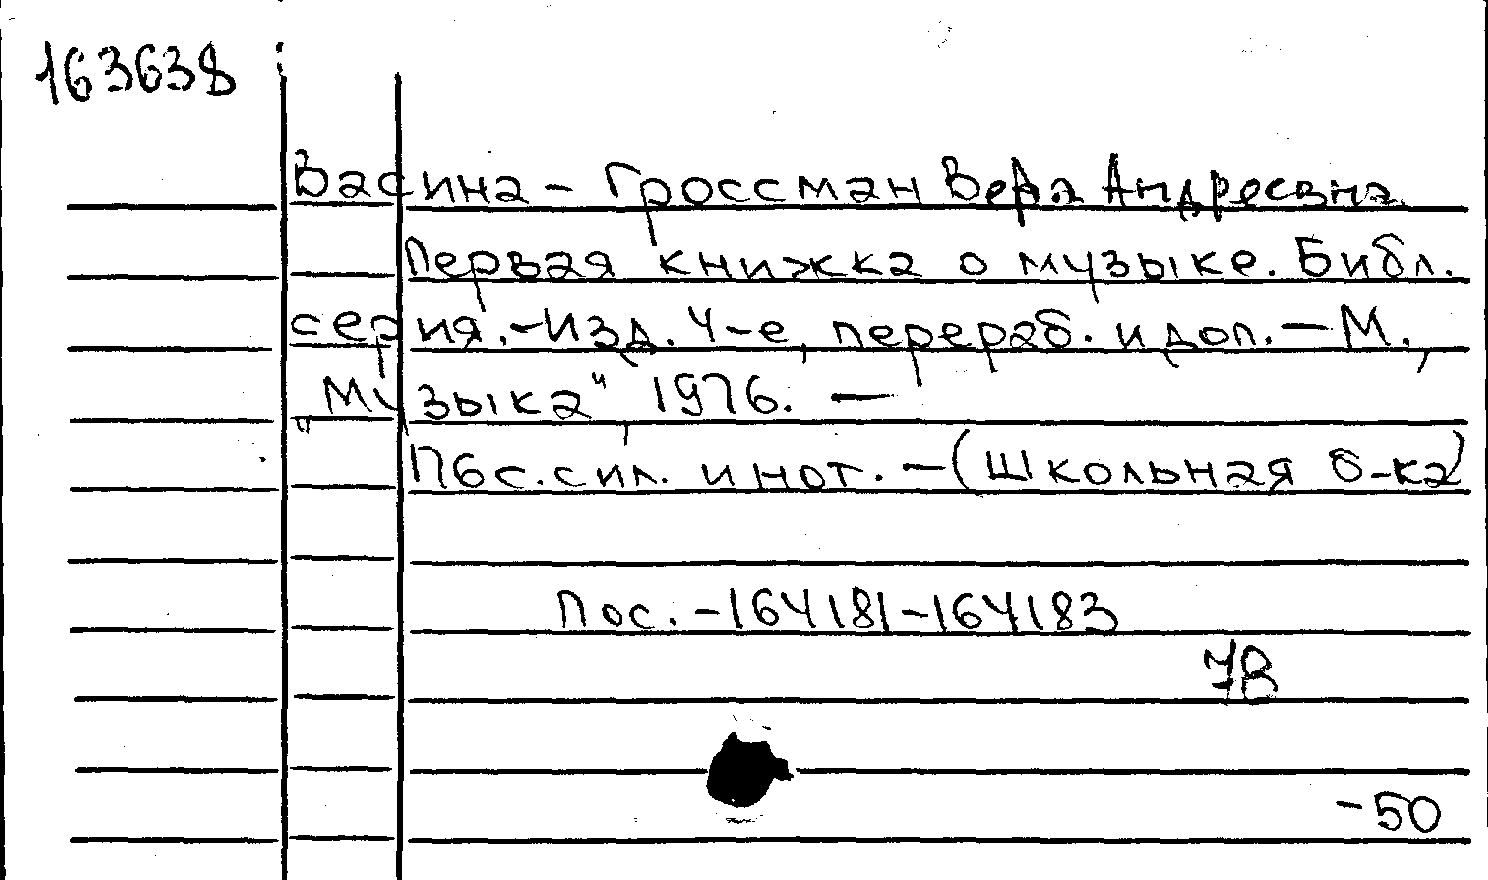 163638
Васина - Гроссман Вера Андреевна
Первая книжка о музыке. Библ.
серия. - Изд. 4-е, перераб. и доп. — М.,
„Музыка" 1976. —
176 с. с ил. и нот. — (Школьная б-ка)
Пос. - 164181 - 164183
7В
-50